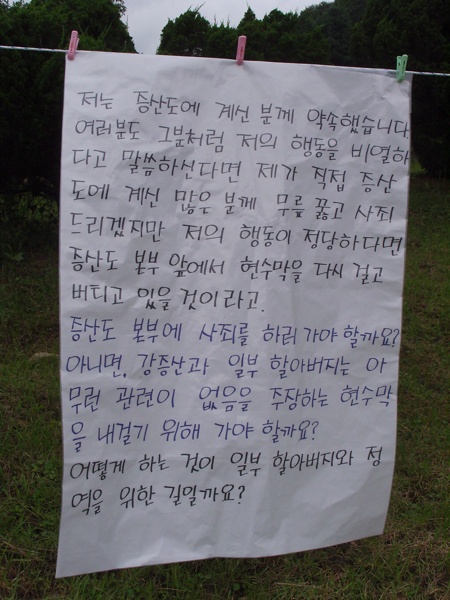 저는 증산도에 계신 분께 약속했습니다.
여러분도 그분처럼 저의 행동을 비열하
다고 말씀하신다면 제가 직접 증산
도에 계신 많은 분께 무릎 꿇고 사죄
드리겠지만 저의 행동이 정당하다면
증산도 본부 앞에서 현수막을 다시 걸고
버티고 있을 것이라고.
증산도 본부에 사죄를 하러 가야 할까요?
아니면, 강증산과 일부 할아버지는 아
무런 관련이 없음을 주장하는 현수막
을 내걸기 위해 가야 할까요?
어떻게 하는 것이 일부 할아버지와 정
역을 위한 길일까요?